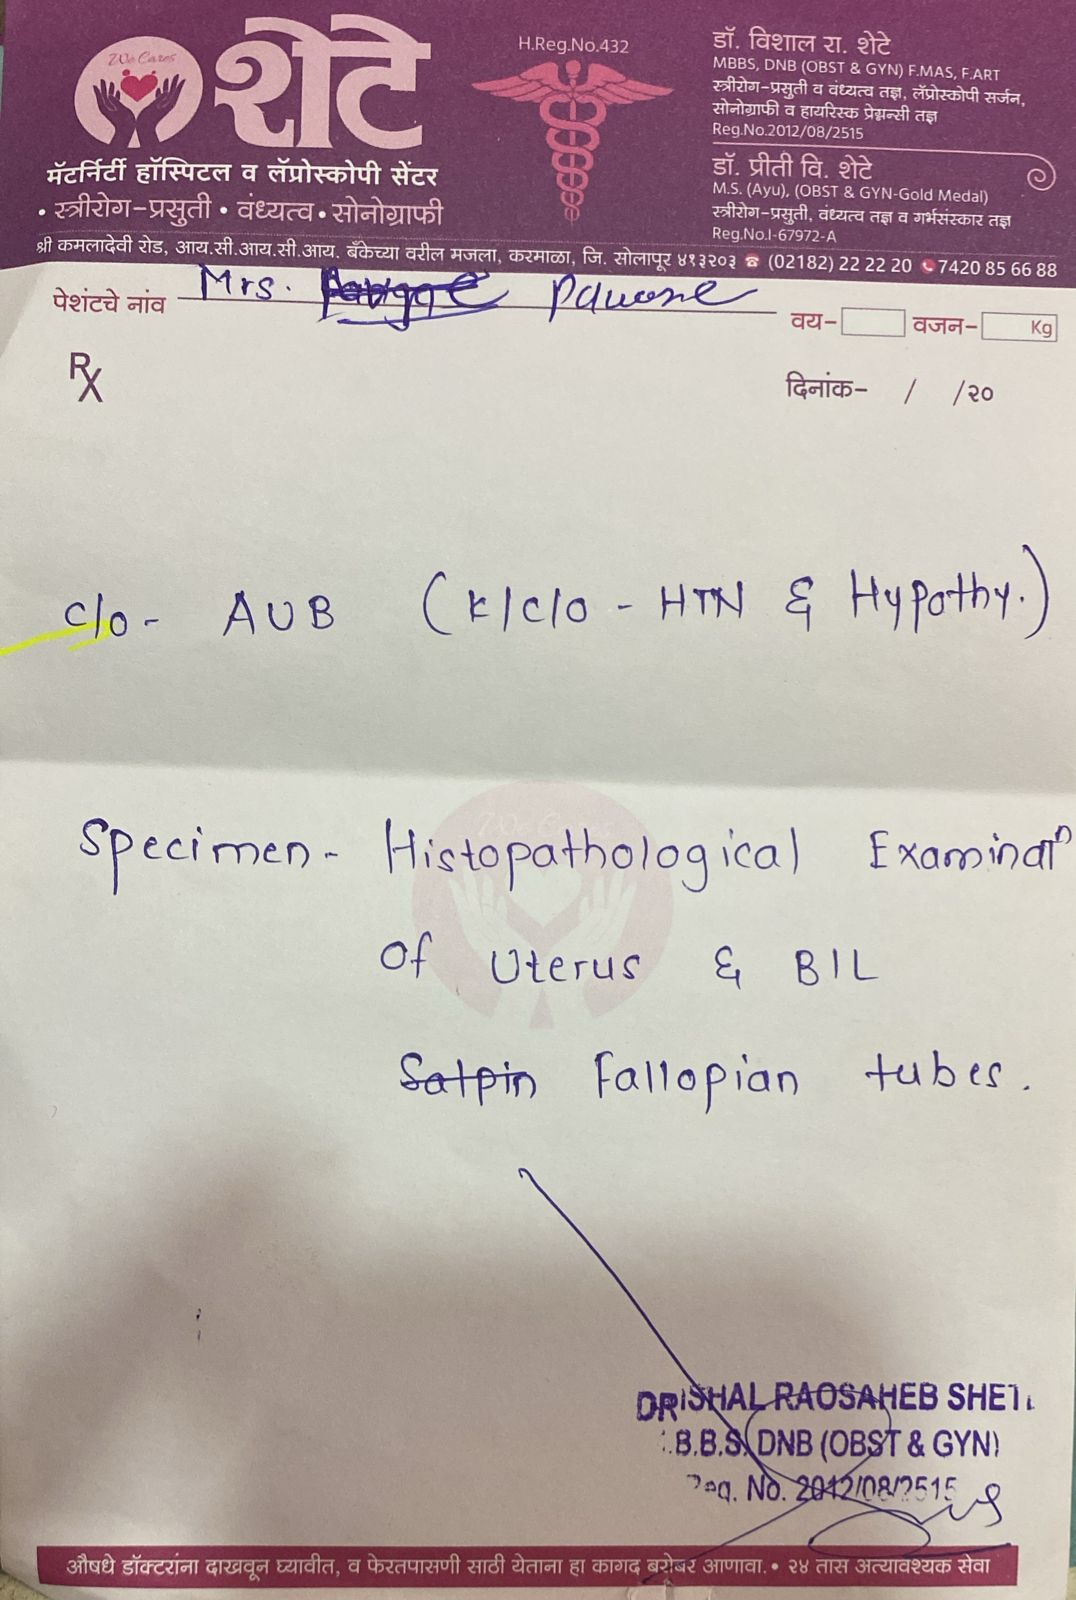 We Cares
शेटे
मॅटर्निटी हॉस्पिटल व लॅप्रोस्कोपी सेंटर
• स्त्रीरोग-प्रसुती • वंध्यत्व • सोनोग्राफी
H.Reg.No.432
डॉ. विशाल रा. शेटे
MBBS, DNB (OBST & GYN) F.MAS, F.ART
स्त्रीरोग-प्रसुती व वंध्यत्व तज्ञ, लॅप्रोस्कोपी सर्जन,
सोनोग्राफी व हायरिस्क प्रेग्नन्सी तज्ञ
Reg.No.2012/08/2515
डॉ. प्रीती वि. शेटे
M.S. (Ayu), (OBST & GYN-Gold Medal)
स्त्रीरोग-प्रसुती, वंध्यत्व तज्ञ व गर्भसंस्कार तज्ञ
Reg.No.I-67972-A
श्री कमलादेवी रोड, आय.सी.आय.सी.आय. बँकेच्या वरील मजला, करमाळा, जि. सोलापूर ४१३२०३ ☎ (02182) 22 22 20 7420 85 66 88
पेशंटचे नांव Mrs.
वय- वजन- Kg
Rx
दिनांक- / /२०
c/o- AUB (K/c/o - HTN & Hypothy.)
Specimen - Histopathological Examinatⁿ
of Uterus & B/L
Fallopian tubes.
DR ISHAL RAOSAHEB SHET
.B.B.S. DNB (OBST & GYN)
No. 2012/08/2515
औषधे डॉक्टरांना दाखवून घ्यावीत, व फेरतपासणी साठी येताना हा कागद बरोबर आणावा. • २४ तास अत्यावश्यक सेवा